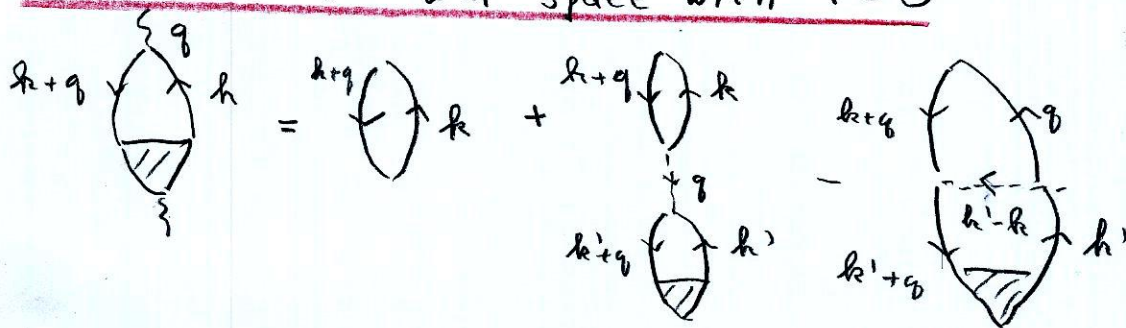 space with
q
k+q k = k+q k + k+q k - k+q q
q
k'-k
k'+q k' k'+q k'